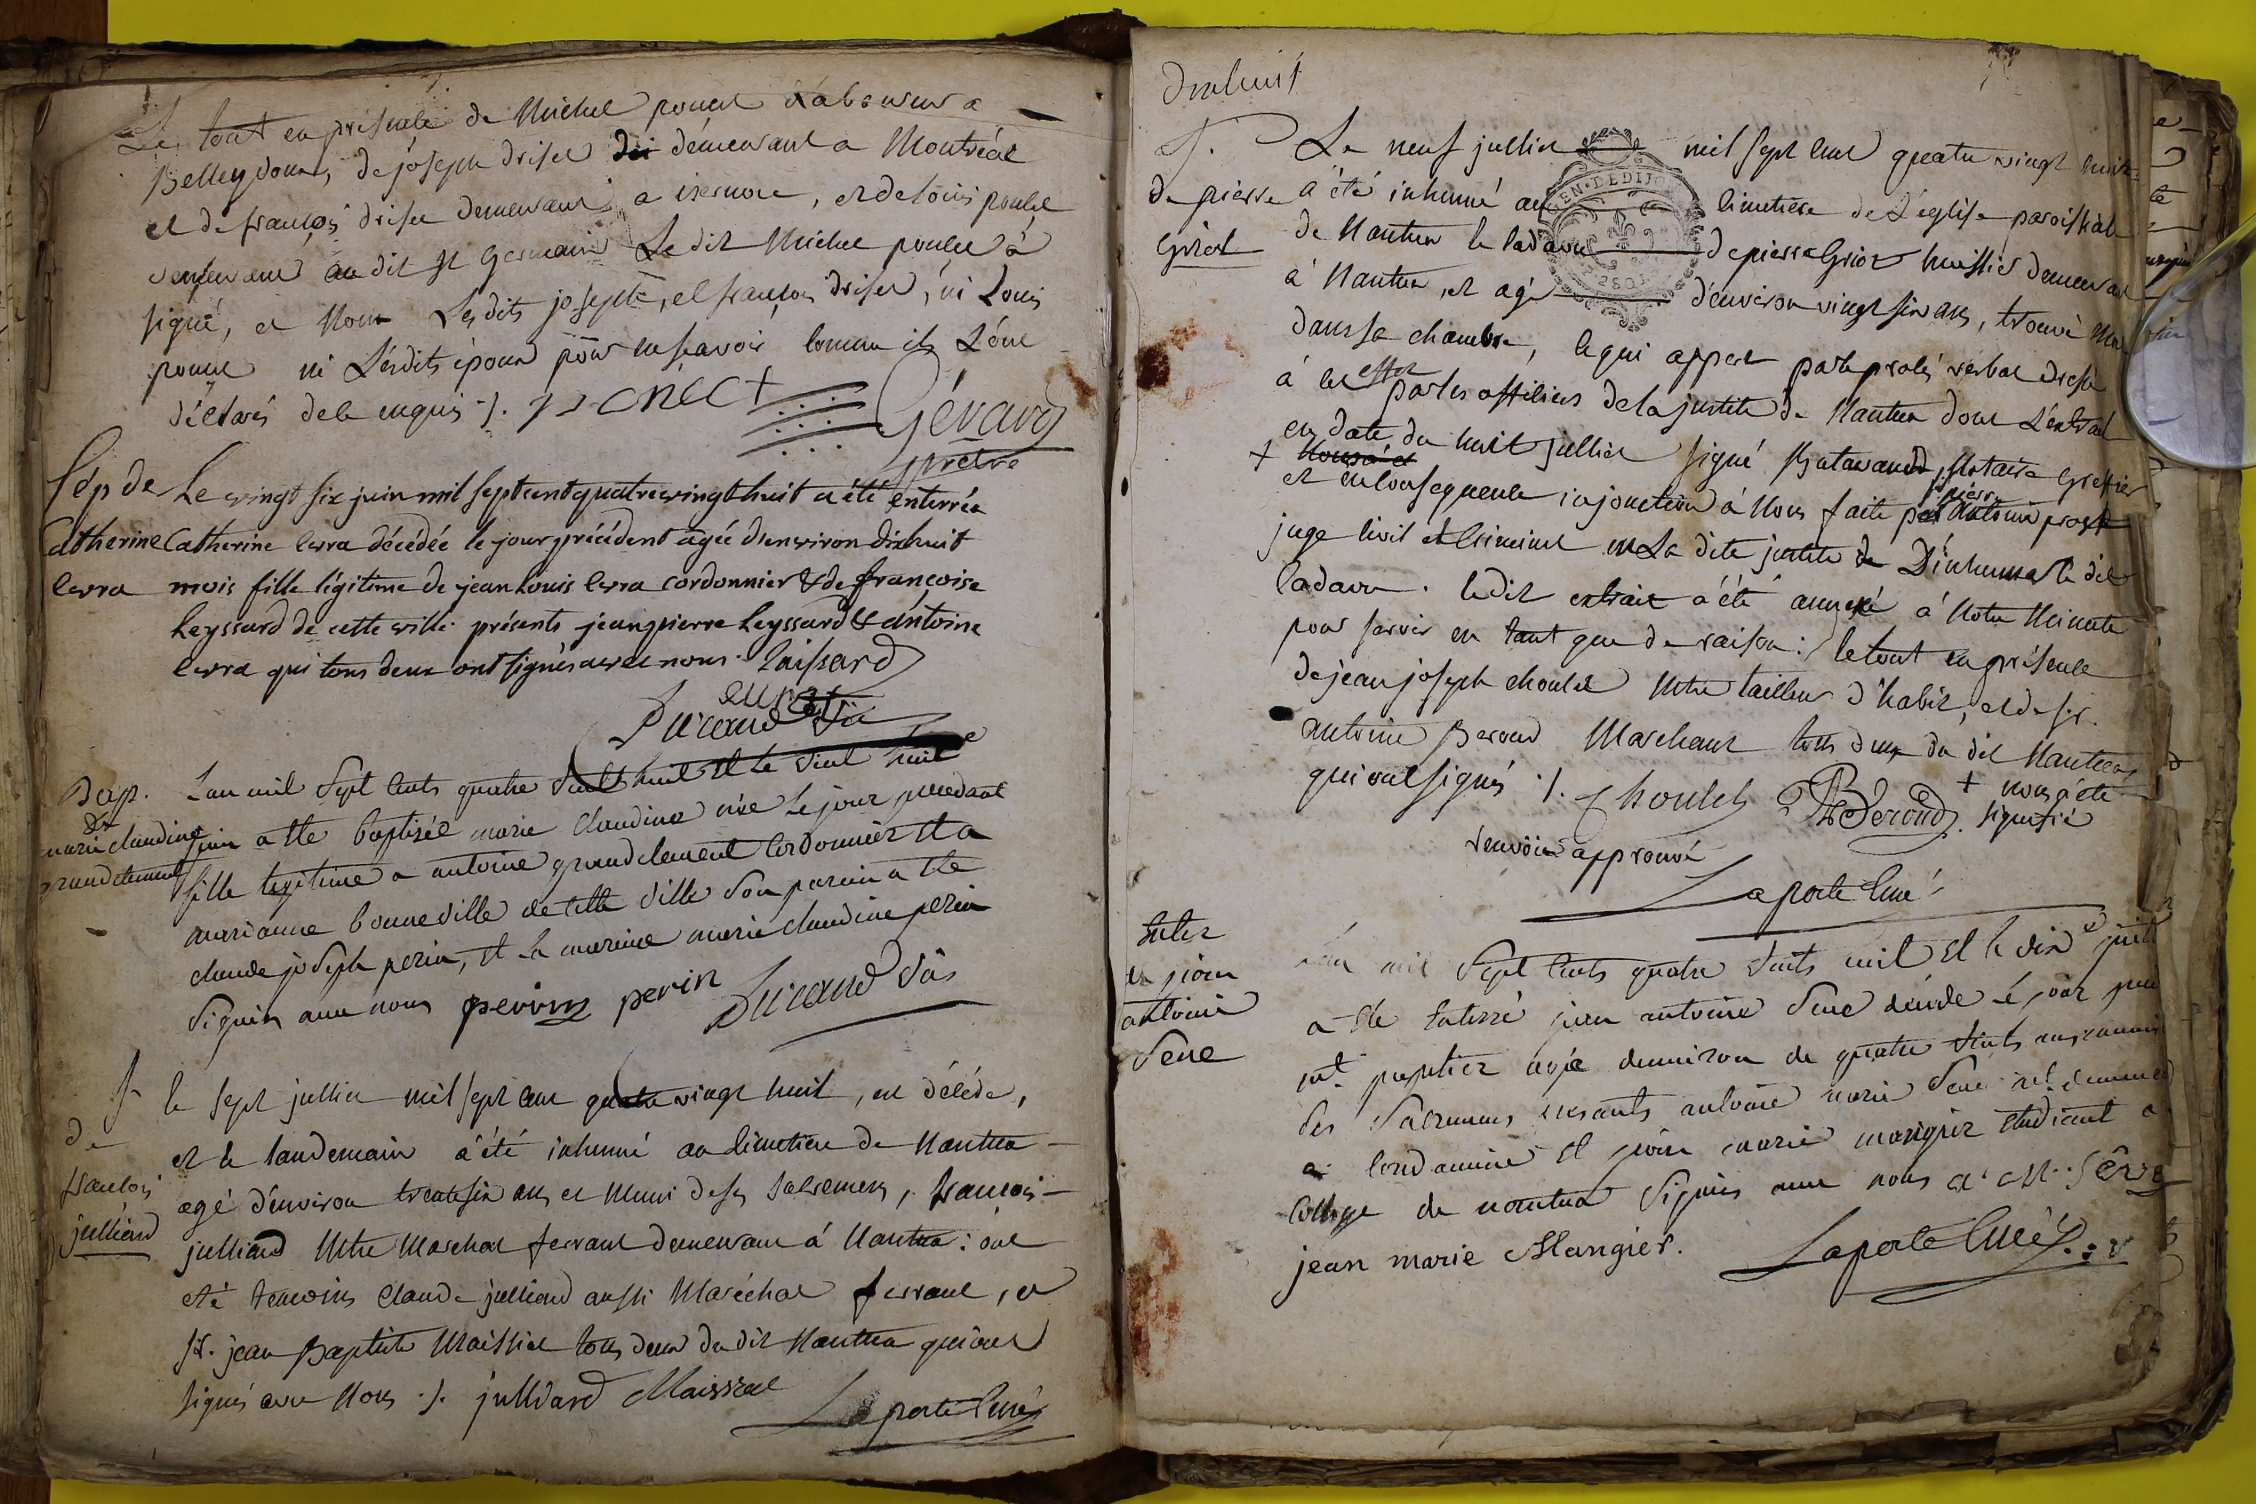 Le tout en présence de Michel poncet Laboureur a
Belleydoux, de joseph driset demeurant a Montréal
et de françois driset demeurant a isernore, et de Louis poncet
demeurant au dit st Germain Le dit Michel poncet à
signé, et Non Les dits joseph, et françois driset, ni Louis
poncet ni Lesdits époux pour ne scavoir comme ils L'ont
déclarés de ce enquis ./.
Gévard
prêtre
Sép de
Catherine
Cerra
Le vingt six juin mil sept cent quatre vingt huit a été enterrée
Catherine Cerra décédée le jour précédent agée d'environ dixhuit
mois fille légitime de jean Louis Cerra cordonnier & de françoise
Leyssard de cette ville. présents jeanpierre Leyssard & antoine
Cerra qui tous deux ont signés avec nous. Laissard
Ducand vic
Bap.
de
marie claudine
grandclement
L'an mil Sept Cents quatre vint huit et le vint huit
juin a été baptisée marie Claudine née le jour precedant
fille legitime a antoine grandclement Cordonnier et a
marianne bonneville de cette ville son parein a été
claude joseph perin, et la mareine marie claudine perin
Signés avec nous perin perin Ducand vic
S.
de
francois
julliand
le sept jullier mil sept cent quatre vingt huit, est décédé,
et le landemain à été inhumé au cimetiere de Nantua
agé d'environ trentesix ans et Muni de ses sacremens, francois
julliand Mtre Marechal ferrant demeurant á Nantua : ont
été temoins Claude julliand aussi Maréchal ferrant, et
sr. jean Baptiste Maissiat tous deux du dit Nantua qui ont
signés avec Nous ./. julliard Maissiat
Laporte Curé
Dixhuit
S.
de pierre
Griot
Le neuf jullier mil sept cent quatre vingt huit
à été inhumé au cimetiere de L'église paroissiale
de Nantua le cadavre de pierre Griot huissier demeurant
à Nantua, et agé d'environ vingt six ans, trouvé
dans sa chambre, ce qui appert par le procès verbal dressé
à cet effet par les officiers de la justice de Nantua dont L'extrait
en date du huit jullier signé Notaire Greffier
+
et en consequence injonction à Nous faite par pierre antoine prost
juge Civil et Criminel en La dite justice de D'inhumer le dit
Cadavre. le dit extrait à été annexé à Notre Minute
pour servir en tant que de raison : le tout en présence
de jean joseph choulet Mtre tailleur d'habit, et de sr.
antoine Beroud Marchant tous deux du dit Nantua
qui ont signés ./. Choulet Béroud. + nous a été
signifié
renvoie approuvé
Laporte Curé
Enter
de jean
antoine
Sene
L'an mil Sept Cents quatre vints uit et le dix
a été Enterré jean antoine Sene décédé le jour
papetier agé d'environ de quatre vints ans
des Sacremens presants antoine marie Sene
a Condamine et jean marie mangier Etudiant a
College de nantua Signés avec nous a. M. Sêne
jean marie Mangier. Laporte Curé